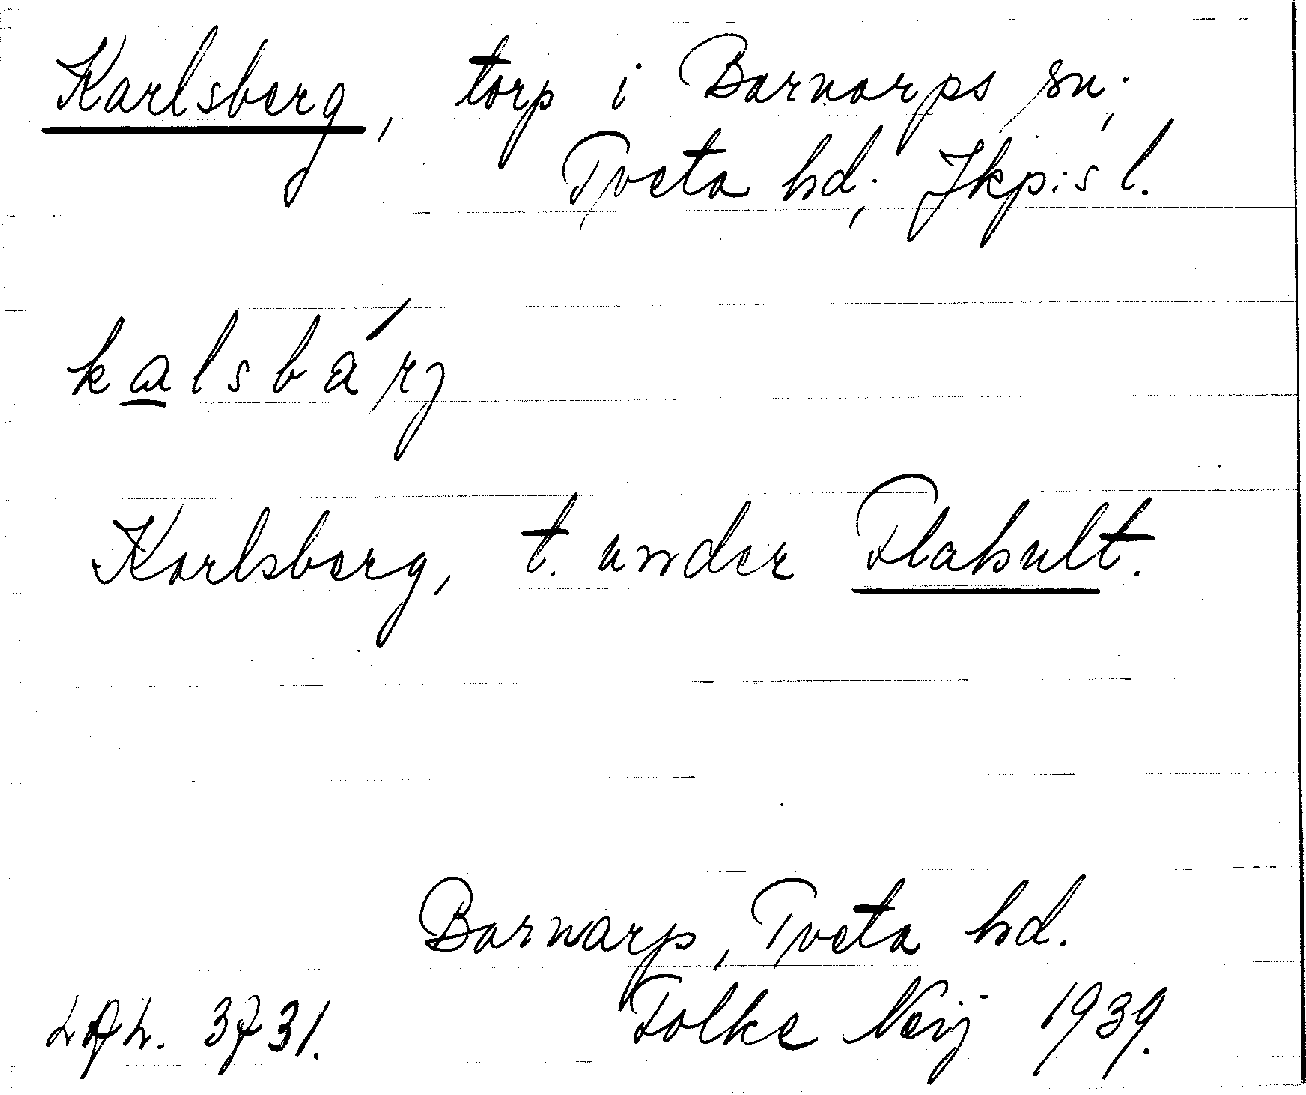 Karlsberg, torp i Barnarps sn;
Tveta hd; Jkp:s l.
kalsbárj
Karlsberg, t. under Flahult.
Barnarp, Tveta hd.
3731. Folke Neij 1939.